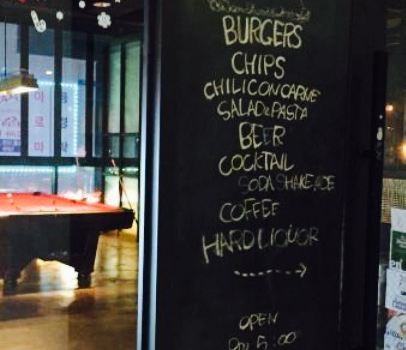 이
로
마
BURGERS
CHIPS
CHILICONCARNE
SALAD & PASTA
BEER
COCKTAIL
SODA SHAKE, ADE
COFFEE
HARD LIQUOR
OPEN
PM 5:00